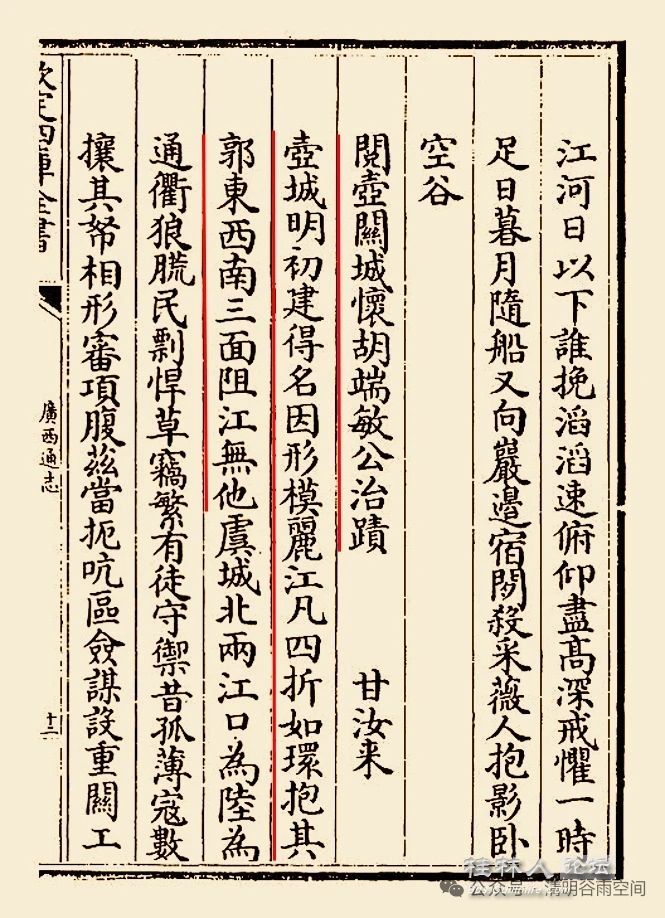 江河日以下誰挽滔滔速俯仰盡高深戒懼一時
足日暮月隨船又向巖邉宿閉殺采薇人抱影卧
空谷
閱壺關城懷胡端敏公治蹟 甘汝来
壺城明初建得名因形模麗江凡四折如環抱其
郭東西南三面阻江無他虞城北兩江口為陸為
通衢狼㡃民剽悍草竊繁有徒守禦昔孤薄寇數
攘其帑相形審項腹茲當扼吭區僉謀設重關工
欽定四庫全書
廣西通志
十二
桂林人论坛
公众号 清明谷雨空间